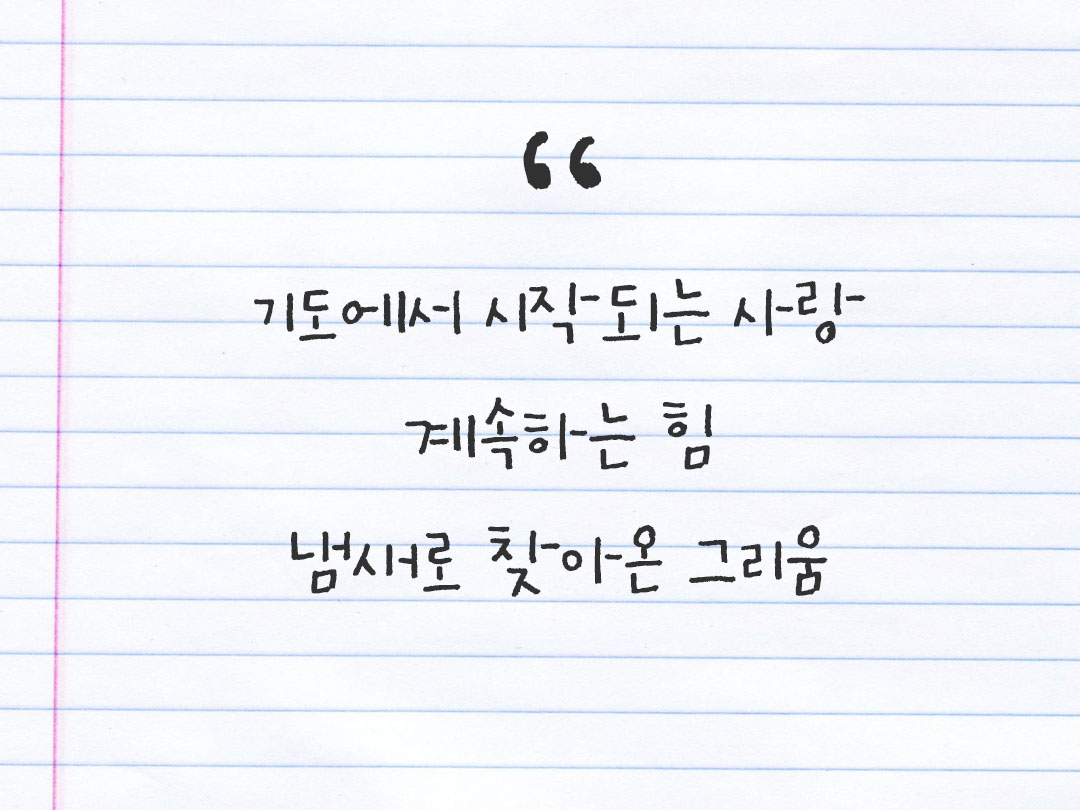 “
기도에서 시작되는 사랑
계속하는 힘
냄새로 찾아온 그리움